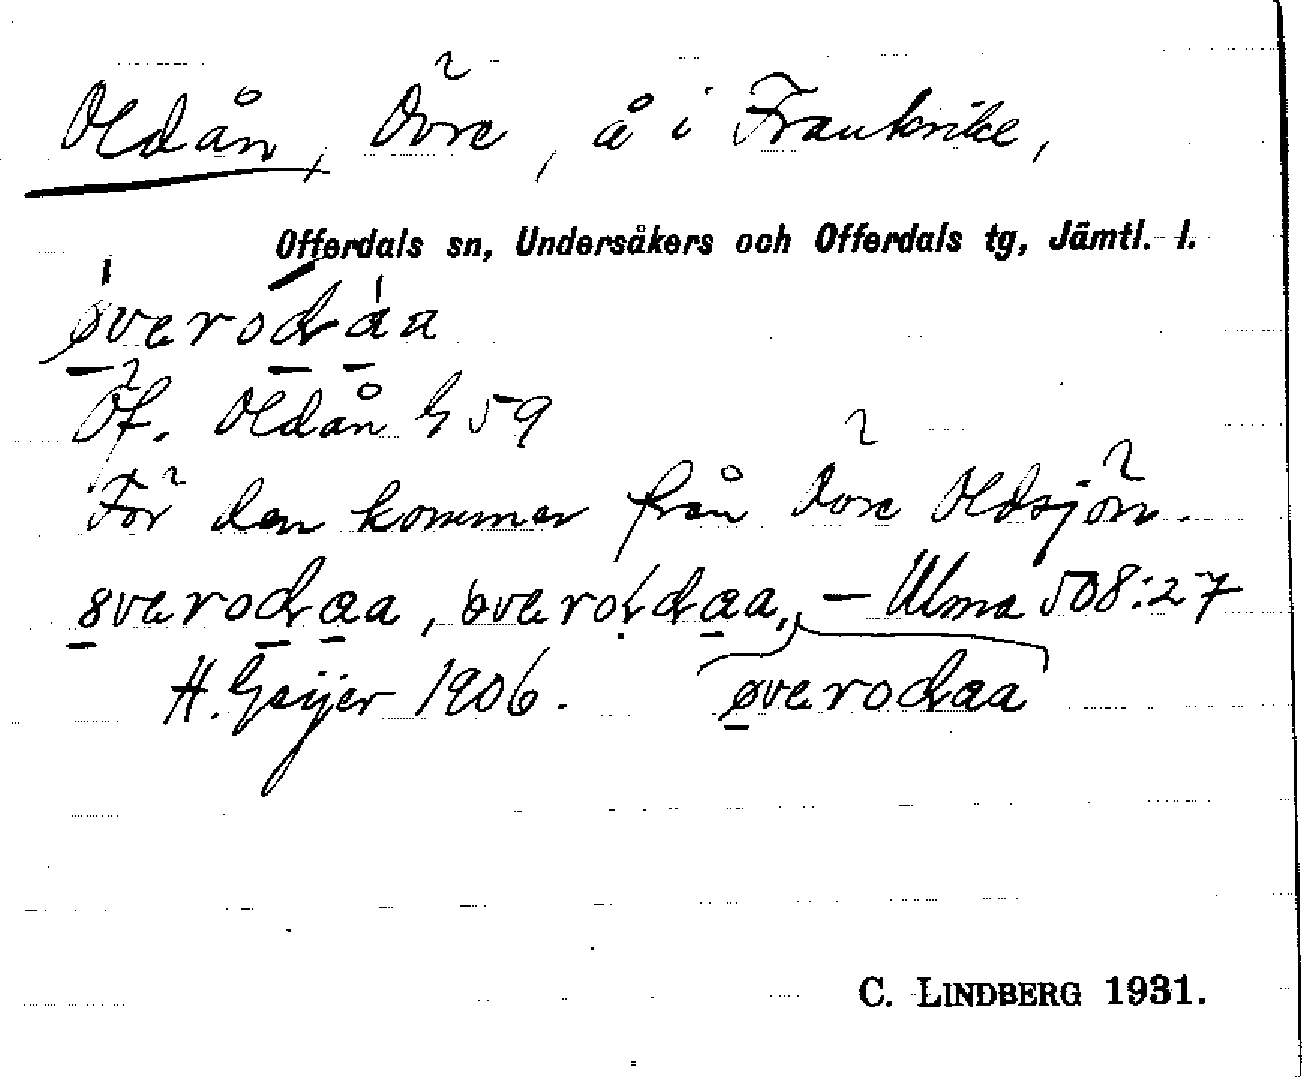 Oldån, Övre, å i Frankrike,
Offerdals sn, Undersåkers och Offerdals tg, Jämtl. l.
øverodåa
Öf. Oldån G 59
För den kommer från Övre Oldsjön.
8verodaa, øveroldaa, – Ulma 508:27
H. Geijer 1906. øverodaa
C. LINDBERG 1931.